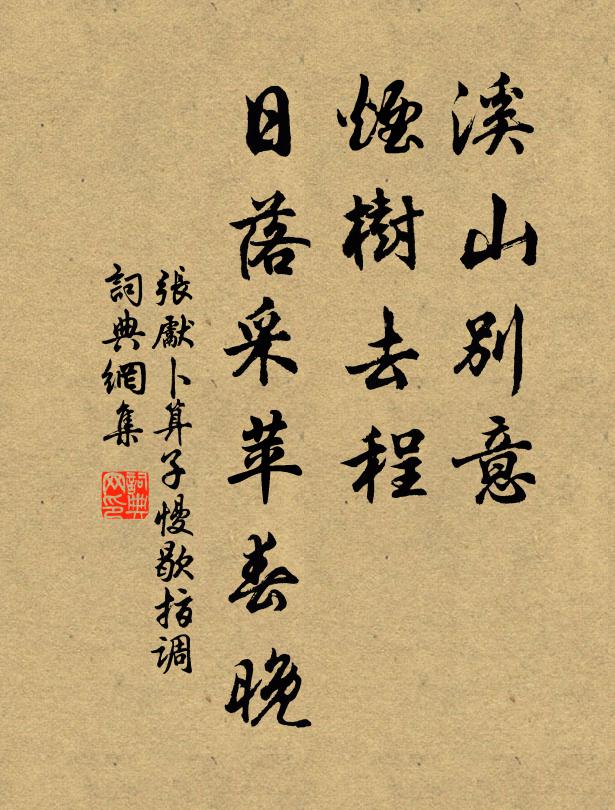 溪山別意
煙樹去程
日落采苹春晚
張獻卜算子慢歇指調
詞典網集
詞典網印